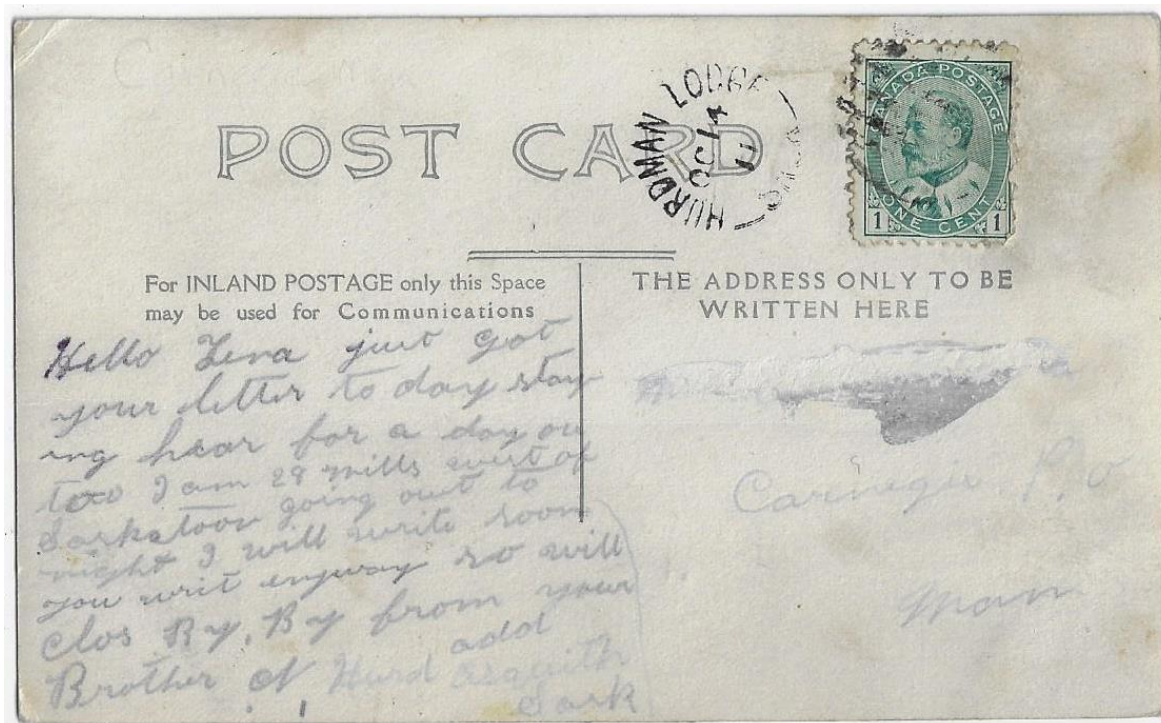 POST CARD
HURDMAN LODGE
OC 14
11
CANADA POSTAGE
1 ONE CENT 1
For INLAND POSTAGE only this Space
may be used for Communications
THE ADDRESS ONLY TO BE
WRITTEN HERE
Hello Lena just got
your letter to day stay
ing hear for a day or
two I am 29 mills west of
Sasketoon going out to
night I will write soon
you writ enyway so will
clos By, By from your
Brother
add
Asquith
Sask
Carnegie P.O
Man